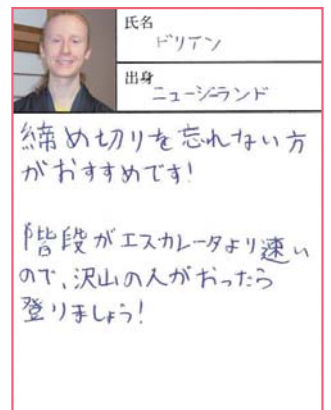 氏名
ドリアン
出身
ニュージーランド
締め切りを忘れない方
がおすすめです!
階段がエスカレータより速い
ので、沢山の人がおったら
登りましょう!